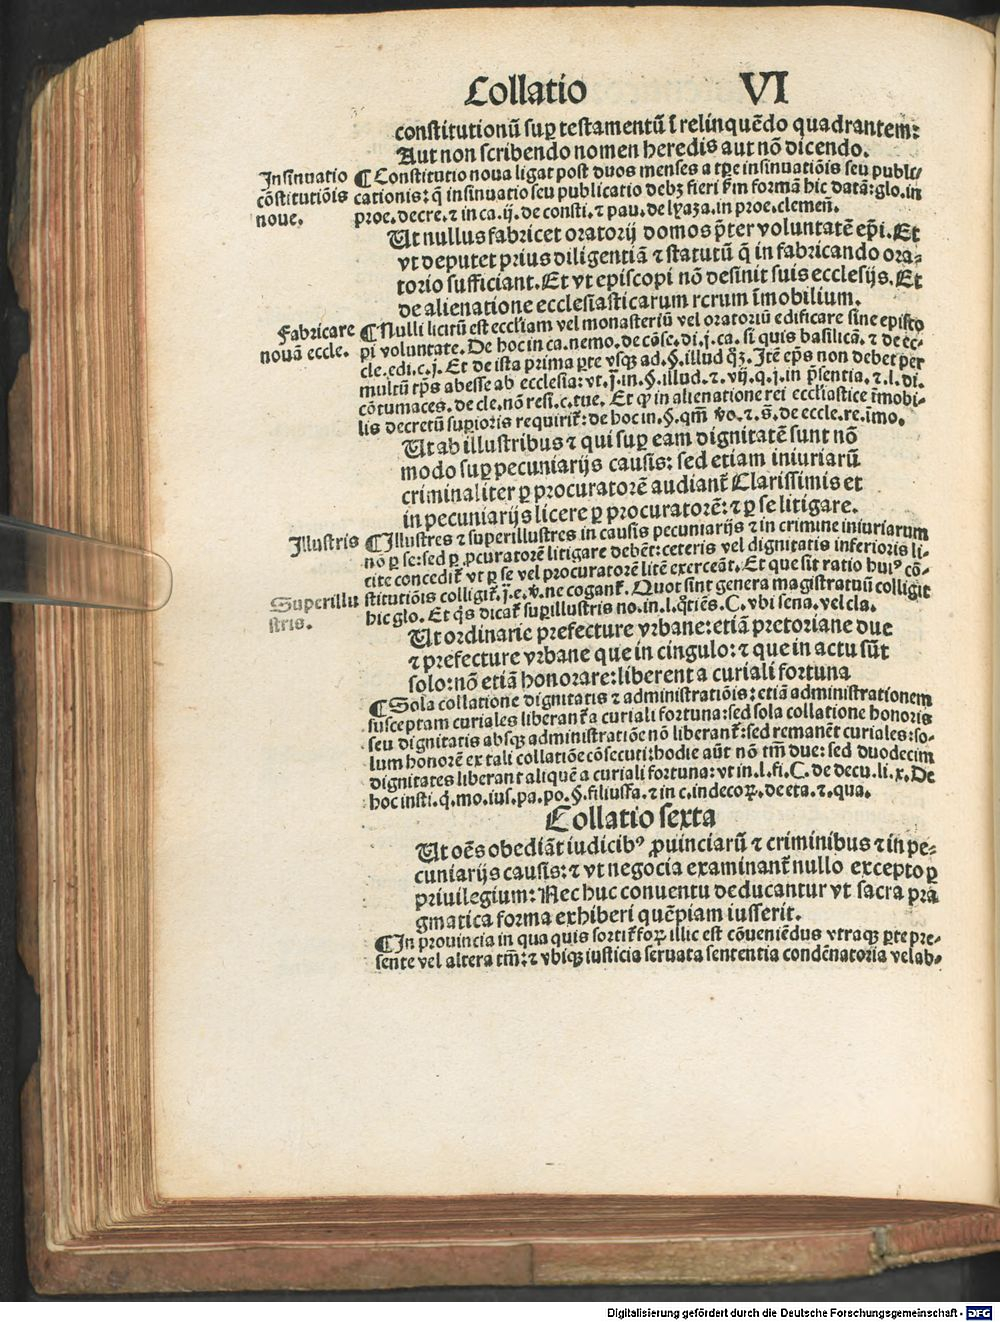 Collatio VI
constitutionū sup̱ testamentū ĩ relinquēdo quadrantem:
Aut non scribendo nomen heredis aut nō dicendo.
Insinuatio
cōstitutiōis
noue.
¶ Constitutio noua ligat post duos menses a tp̄e insinuatiōis seu publi-
cationis: q̄ insinuatio seu publicatio debꝫ fieri k̄m formā hic datā: glo. in
proe. decre. ⁊ in ca. ij. de consti. ⁊ pau. de lyaza. in proe. clemen̄.
Ut nullus fabricet oratorij domos p̄ter voluntatē ep̄i. Et
vt deputet prius diligentiā ⁊ statutū q̄ in fabricando ora-
torio sufficiant. Et vt episcopi nō desinit suis ecclesijs. Et
de alienatione ecclesiasticarum rcrum ĩmobilium.
Fabricare
nouā eccle.
¶ Nulli licitū est eccl̄iam vel monasteriū vel oratoriū edificare sine episco
pi voluntate. De hoc in ca. nemo. de cōse. di. j. ca. si quis basilicā. ⁊ de ec-
cle. edi. c. j. Et de ista prima ꝑte vsqꝫ ad. §. illud q̄ꝫ. Itē ep̄s non debet per
multū tp̄s abesse ab ecclesia: vt. j. in. §. illud. ⁊. vij. q. j. in p̄sentia. ⁊. l. di.
cōtumaces. de cle. nō resi. c. tue. Et ꝙ in alienatione rei eccl̄iastice ĩmobi-
lis decretū suꝑioris requirit̄: de hoc in. §. qm̄ vo. ⁊. s̄. de eccle. re. ĩmo.
Ut ab illustribus ⁊ qui suꝑ eam dignitatē sunt nō
modo suꝑ pecuniarijs causis: sed etiam iniuriarū
criminaliter ꝑ procuratorē audiant̄ Clarissimis et
in pecuniarijs licere ꝑ procuratorē: ⁊ ꝑ se litigare.
Illustris
¶ Illustres ⁊ superillustres in causis pecuniarijs ⁊ in crimine iniuriarum
nō ꝑ se: sed ꝑ ꝓcuratorē litigare debēt: ceteris vel dignitatis inferioris li-
cite concedit̄ vt ꝑ se vel procuratorē litē exerceāt. Et que sit ratio huiꝰ cō-
Superillu
stris.
stitutiōis colligit̄. j. e. v̄. ne cogant̄. Quot sint genera magistratuū colligit
hic glo. Et q̄s dicat̄ suꝑillustris no. in. l. q̄tiēs. C. vbi sena. vel cla.
Ut ordinarie prefecture vrbane: etiā pretoriane due
⁊ prefecture vrbane que in cingulo: ⁊ que in actu sūt
solo: nō etiā honorare: liberent a curiali fortuna
¶ Sola collatione dignitatis ⁊ administratiōis: etiā administrationem
susceptam curiales liberant̄ a curiali fortuna: sed sola collatione honoris
seu dignitatis absqꝫ administratiōe nō liberant̄: sed remanēt curiales: so-
lum honorē ex tali collatiōe cōsecuti: hodie aūt nō tm̄ due: sed duodecim
dignitates liberant aliquē a curiali fortuna: vt in. l. fi. C. de decu. li. x. De
hoc insti. q̄. mo. ius. pa. po. §. filiusfa. ⁊ in c. indecoꝝ. de eta. ⁊. qua.
Collatio sexta
Ut oēs obediāt iudicibꝰ ꝓuinciarū ⁊ criminibus ⁊ in pe-
cuniarijs causis: ⁊ vt negocia examinant̄ nullo excepto ꝑ
priuilegium: Nec huc conuentu deducantur vt sacra pra
gmatica forma exhiberi quēpiam iusserit.
¶ In prouincia in qua quis sortit̄ foꝝ illic est cōueniēdus vtraqꝫ ꝑte pre-
sente vel altera tm̄: ⁊ vbiqꝫ iusticia seruata sententia condēnatoria vel ab-
Digitalisierung gefördert durch die Deutsche Forschungsgemeinschaft - DFG